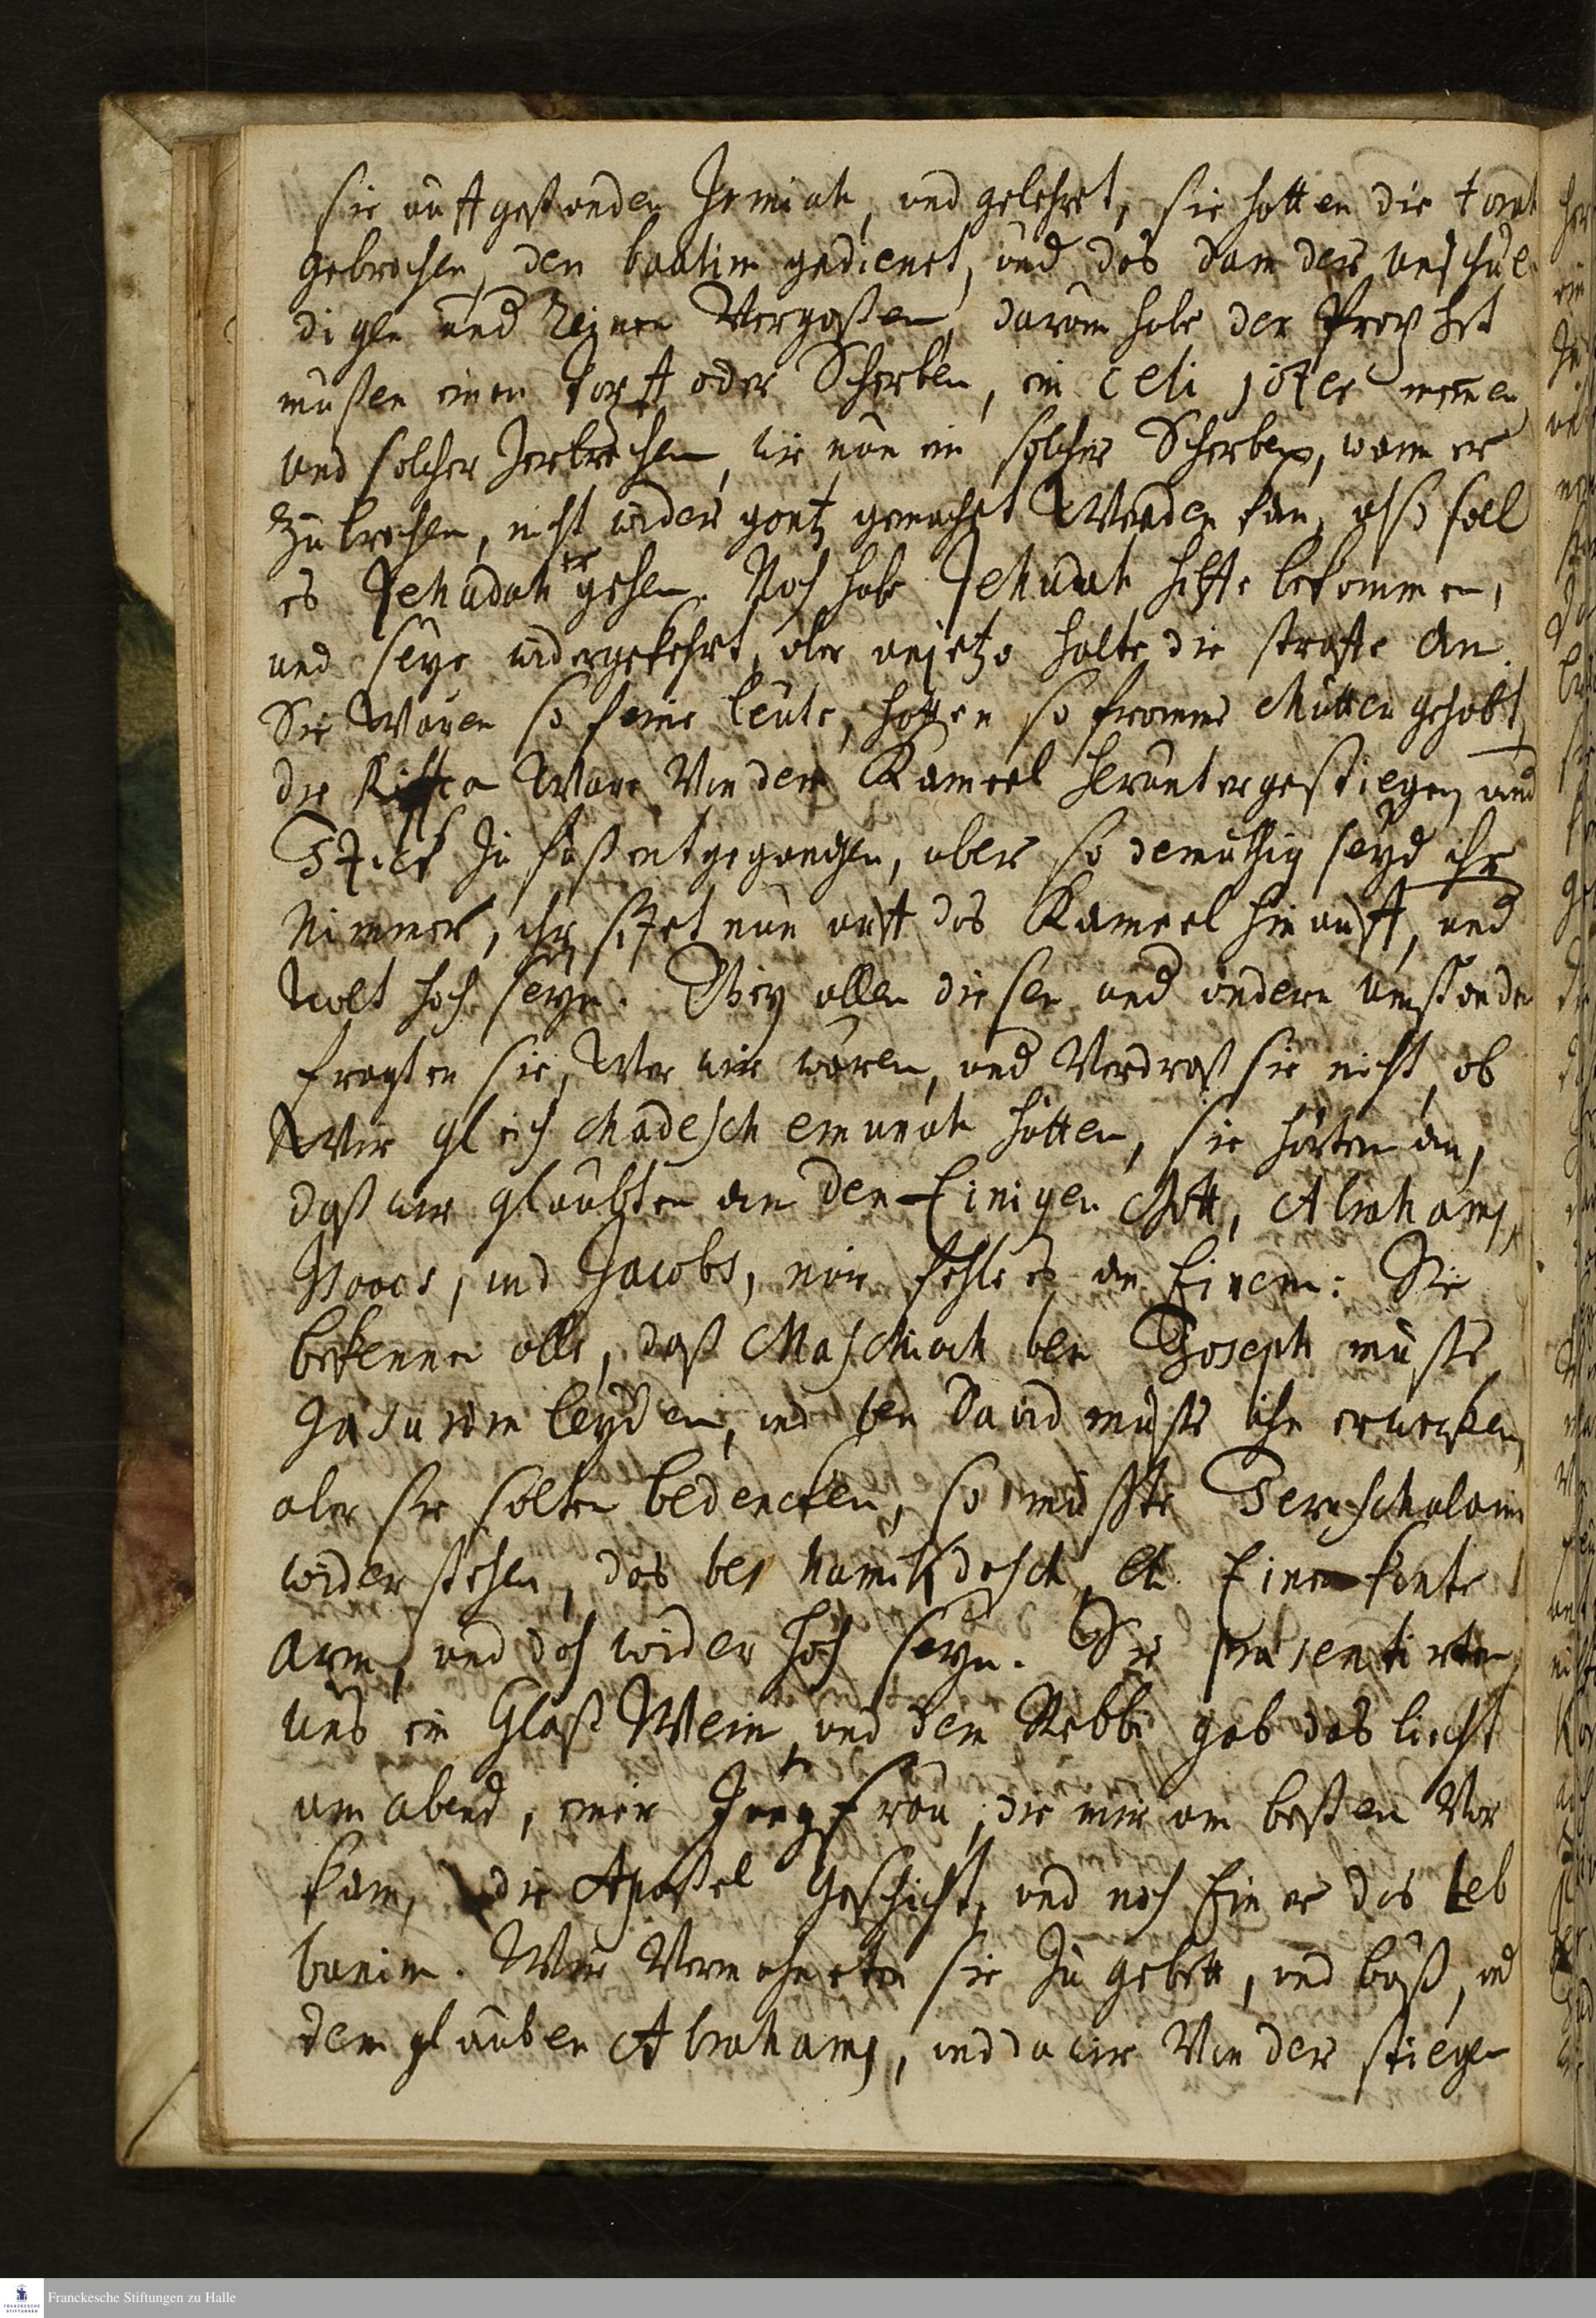 sie aufgestanden Jrmiah, und gelehret, sie hatten die torah
gebrochen, den baalim gedienet, und das dam der unschul-
digen und Reinen Vergoßen, darum habe der Prophet
müßen einen topf oder Scherben, ein celi jozer nemen
und solchen zerbrechen, wie nun ein solcher Scherben, wann er
zubrochen, nicht wider gantz gemacht Werden kan, also soll
es Jehudah er gehen. Noch habe Jehudah hilffe bekommen,
und seye widergekehrt, aber anjetzo halte die straffe an.
Sie Waren so feine leute, hatten so fromme Mütter gehabt,
die Rifka Ware Von dem Kameel heruntergestiegen und
Izack zu fuß entgegangen, aber so demüthig seyd ihr
Nimmer, ihr sitzet nun auff das Kameel hinauff, und
Wolt hoch seyn. Bey allen diesen und andern umstanden
fragten sie, Wer wir wären, und Verdroß sie nicht, ob
Wir gleich chadesch emunah hätten, sie hörten an,
daß wir glaubten an den Einigen Gott, Abrahams,
Isaacs, und Jacobs, nur fehle es an Einem: Sie
bekennen alle, daß Maschiach ben Joseph müste
Jasurim leyden, und ben David müste ihn erwecken,
aber sie solten bedencken, so müste Jeruschalaim
wider stehen, das bes hamikdasch etc. Einer konte
arm, und doch wider hoch seyn. Sie præsentirten
uns ein Glaß Wein, und dem Rebbi gab das liecht
am abend, einer Jungfrau, die mir am besten Vor
kam, die Apostel Geschicht, und noch Einer das leb
banim. Wir Vermahneten sie zu gebett, und buß, und
dem glauben Abrahams, und da wir Von der stiegen
Franckesche Stiftungen zu Halle